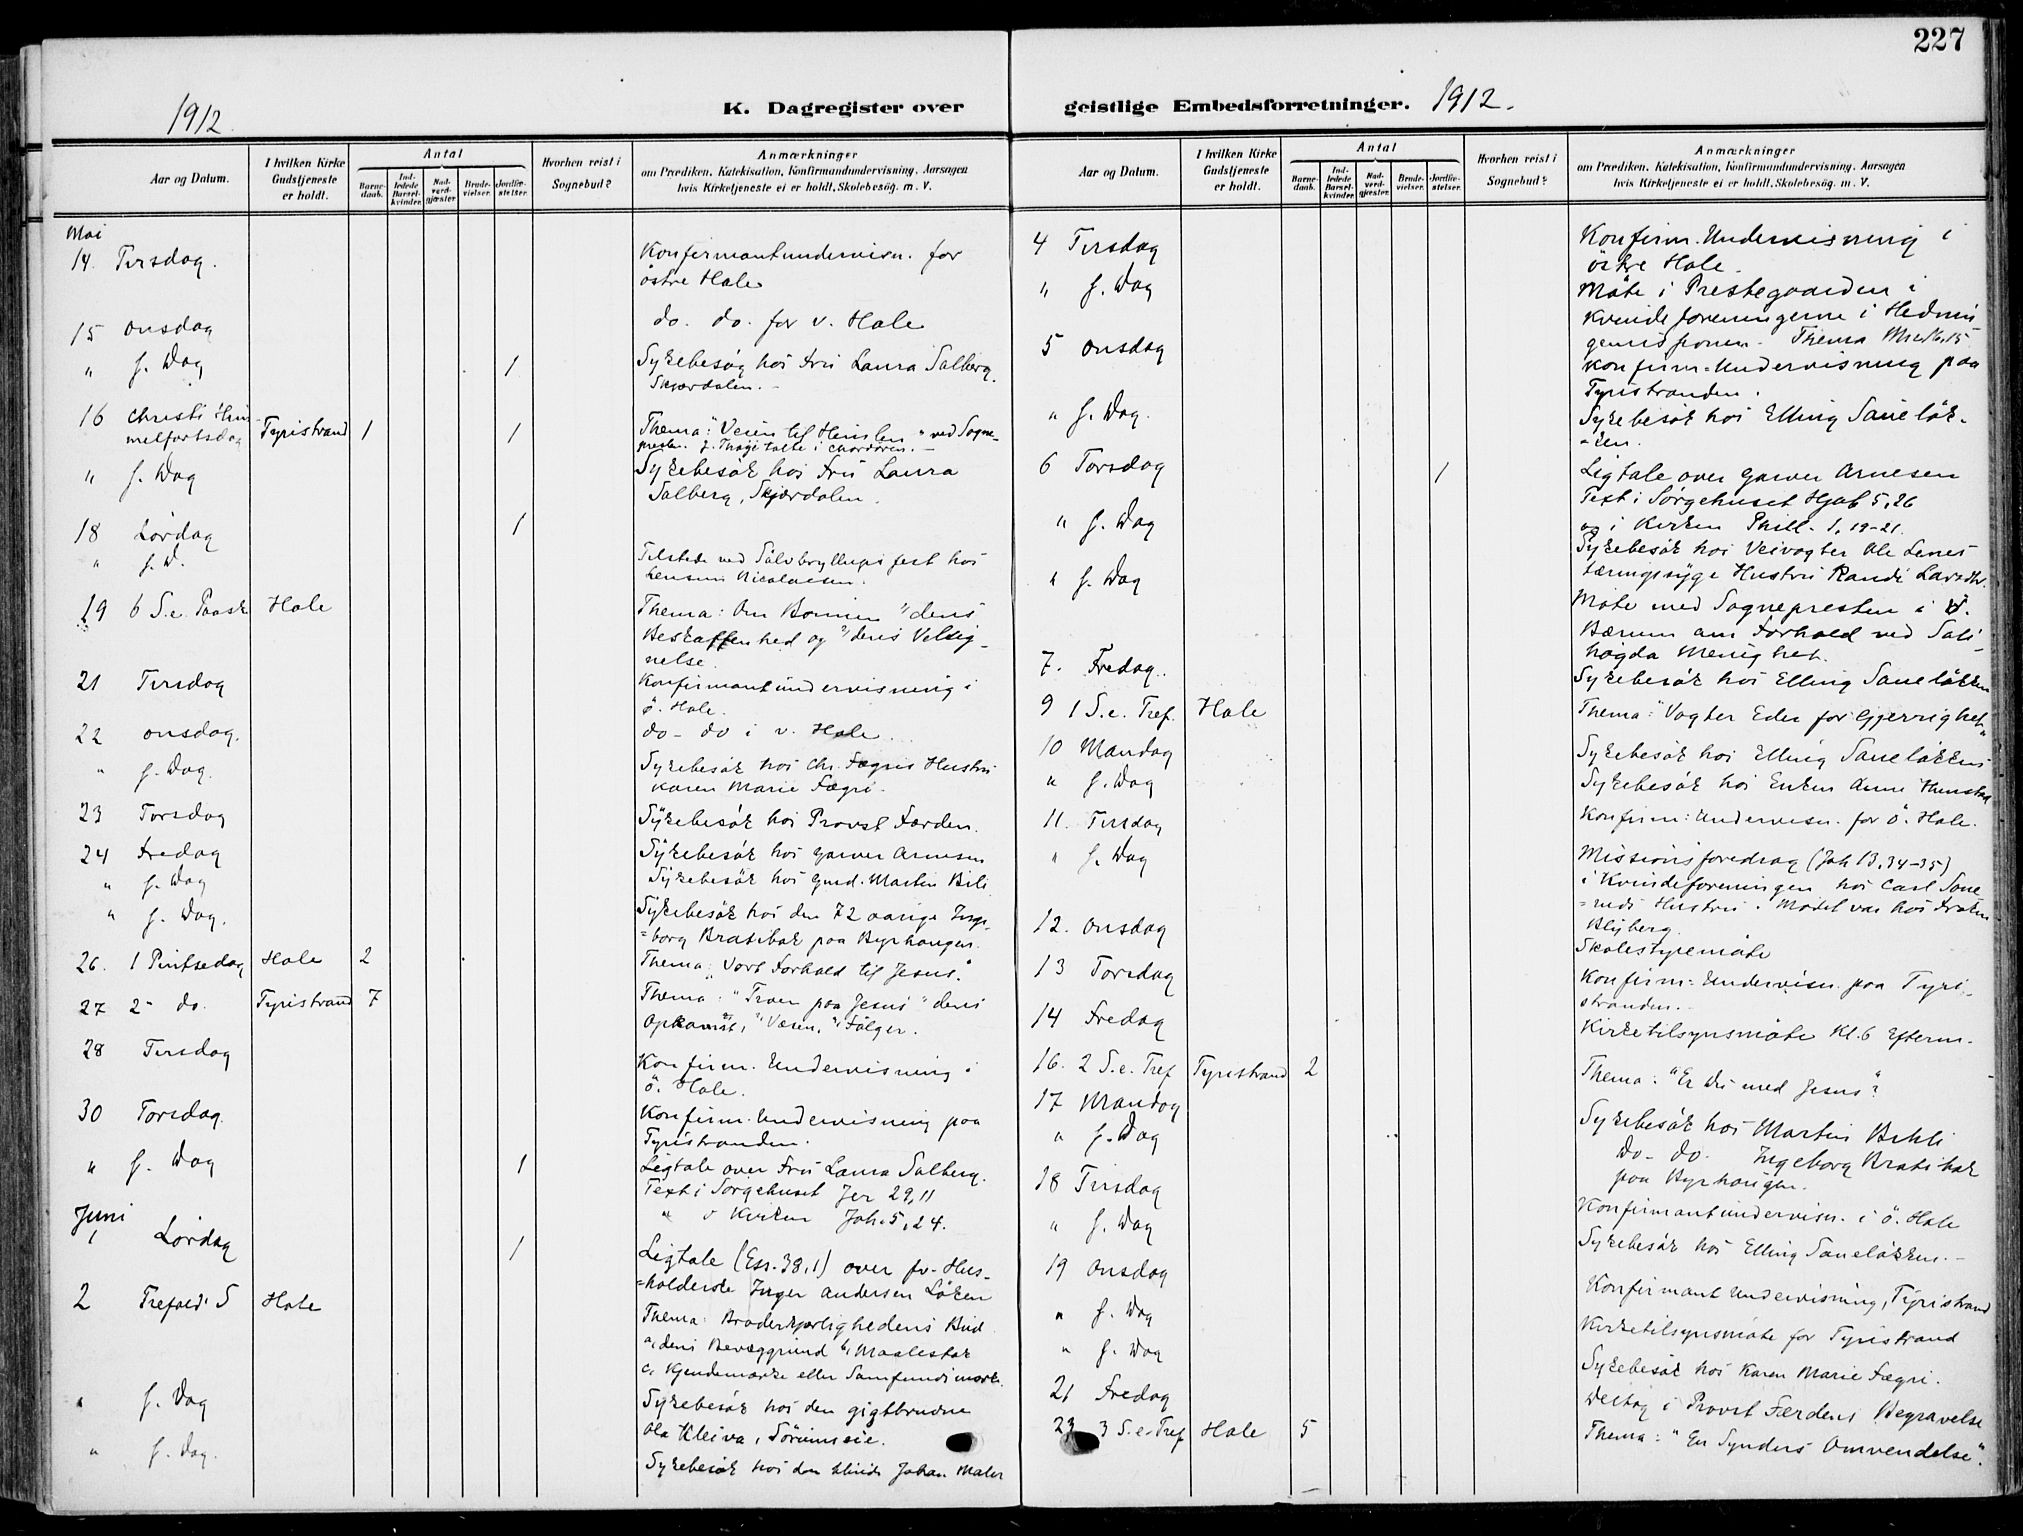 227
1912
K. Dagregister over
Aar og Datum.
I hvilken Kirke Gudstjeneste er holdt.
Antal
Barne-daab.
Ind-ledede Barsel-kvinder.
Nad-verd-gjæster.
Brude-vielser.
Jordfæ-stelser.
Hvorhen reist i Sognebud?
Anmærkninger
om Prædiken, Katekisation, Konfirmandundervisning, Aarsagen
hvis Kirketjeneste ei er holdt, Skolebesög. m. V.
Mai
14. Tirsdag. Konfirmantundervisn. for
östre Hole
15 Onsdag do. do. for v. Hole
" s. Dag 1 Sykebesög hos Fru Laura Solberg,
Skjærdalen. -
16 Christi Him-
melfartsdag Tyristrand 1 1 Thema: "Veien til Himlen" ved Sogne-
presten. talte i Chordören. -
" s. Dag Sykebesök hos Fru Laura
Solberg, Skjærdalen.
18 Lördag 1
" s. D. Tilstede ved Sölvbryllups fest hos
Nicolaisen.
19 6 S. e. Paask Hole Thema: Om Bönnen 1) dens
Beskaffenhed og 2) dens Velsig-
nelse.
21 Tirsdag Konfirmantundervisning i
ö. Hole.
22 Onsdag. do - do i v. Hole
" s. Dag. Sykebesök hos Chr. Fægris Hustru
Karen Marie Fægri.
23 Torsdag Sykebesök hos Provst Færden.
24 Fredag Sykebesök hos garver Arnesen
" s. Dag Sykebesök hos Martin Bili
" s. Dag. Sykebesök hos den 72 aarige Inge-
=borg Bratibak paa Byrhaugen.
26. 1 Pintsedag Hole 2 Thema: "Vort Forhold til Jesus."
27 2 - do. Tyristrand 7 Thema: "Troen paa Jesus" dens
Opkomst, Væsen, Fölger.
28 Tirsdag Konfirm. Undervisning i
ö. Hole.
30 Torsdag. Konfirm. Undervisning paa
Tyristranden.
" s. Dag 1 Ligtale over Fru Laura Solberg.
Text i Sörgehuset Jer 29,11
" i Kirken Joh. 5,24.
Juni
1 Lördag 1 Ligtale (Esa. 38,1) over fv. Hus-
=holderske Inger Andersen Löken
2 Trefold. S Hole Thema: Broderkjærlighedens Bud
a, dens Bevæggrund b, Maalestok
c, Kjendemærke eller Samfundsmærke.
" s. Dag Sykebesök hos den gigtbrudne
Ola Kleiva, Sörumseie.
" s. Dag. Sykebesök hos den blinde Johan Maler
geistlige Embedsforretninger. 1912.
Aar og Datum.
I hvilken Kirke Gudstjeneste er holdt.
Antal
Barne-daab.
Ind-ledede Barsel-kvinder.
Nad-verd-gjæster.
Brude-vielser.
Jordfæ-stelser.
Hvorhen reist i Sognebud?
Anmærkninger
om Prædiken, Katekisation, Konfirmandundervisning, Aarsagen
hvis Kirketjeneste ei er holdt, Skolebesög. m. V.
4 Tirsdag Konfirm. Undervisning i
östre Hole.
" s. Dag Möte i Prestegaarden i
Kvindeforeningerne i Hednin
gemissionen. Thema
5 Onsdag Konfirm. Undervisning paa
Tyristranden.
" s. Dag. Sykebesök hos Elling Sonelök-
=ken.
6 Torsdag 1 Ligtale over garver Arnesen
Text i Sörgehuset Hjob 5,26
" s. Dag og i Kirken Phill. 1, 19-21.
Sykebesök hos Veivogter Ole Lenes
" s. Dag tæringssyge Hustru Randi Larsdtr.
Möte med Sognepresten i V.
Bærum om Forhold ved Soli-
högda Menighet.
7. Fredag. Sykebesök hos Elling Sonelökken
9 1 S. e. Tref. Hole Thema: "Vogter Eder for Gjerrighet"
10 Mandag Sykebesök hos Elling Sonelökken
" s. Dag Sykebesök hos Enken Anne Hunstad
11. Tirsdag Konfirm. Undervisn. for ö. Hole.
" s. Dag Missionsforedrag (Joh 13, 34-35)
i Kvindeforeningen hos Carl Sone
=ruds Hustru. Mödet var hos Fröken
Blyberg.
12. Onsdag Skolestyremöte
13 Torsdag Konfirm. Undervisn. paa Tyri-
stranden. -
14 Fredag Kirketilsynsmöte Kl. 6 Efterm.
16. 2 S. e. Tref Tyristrand 2 Thema: "Er du med Jesus"?
17 Mandag Sykebesök hos Martin Bihli
" s. Dag Do - do. Ingeborg Bratibak
paa Byrhaugen.
18 Tirsdag Konfirmantundervisn. i ö. Hole
" s. Dag Sykebesök hos Elling Sonelökken. -
19 Onsdag Konfirmant Undervisning, Tyristrand
" s. Dag Kirketilsynsmöte for Tyristrand
" s. Dag Sykebesök hos Karen Marie Fægri.
21 Fredag Deltog i Provst Færdens Begravelse
23 3 S. e. Tref Hole 5 Thema: "En Synders Omvendelse".